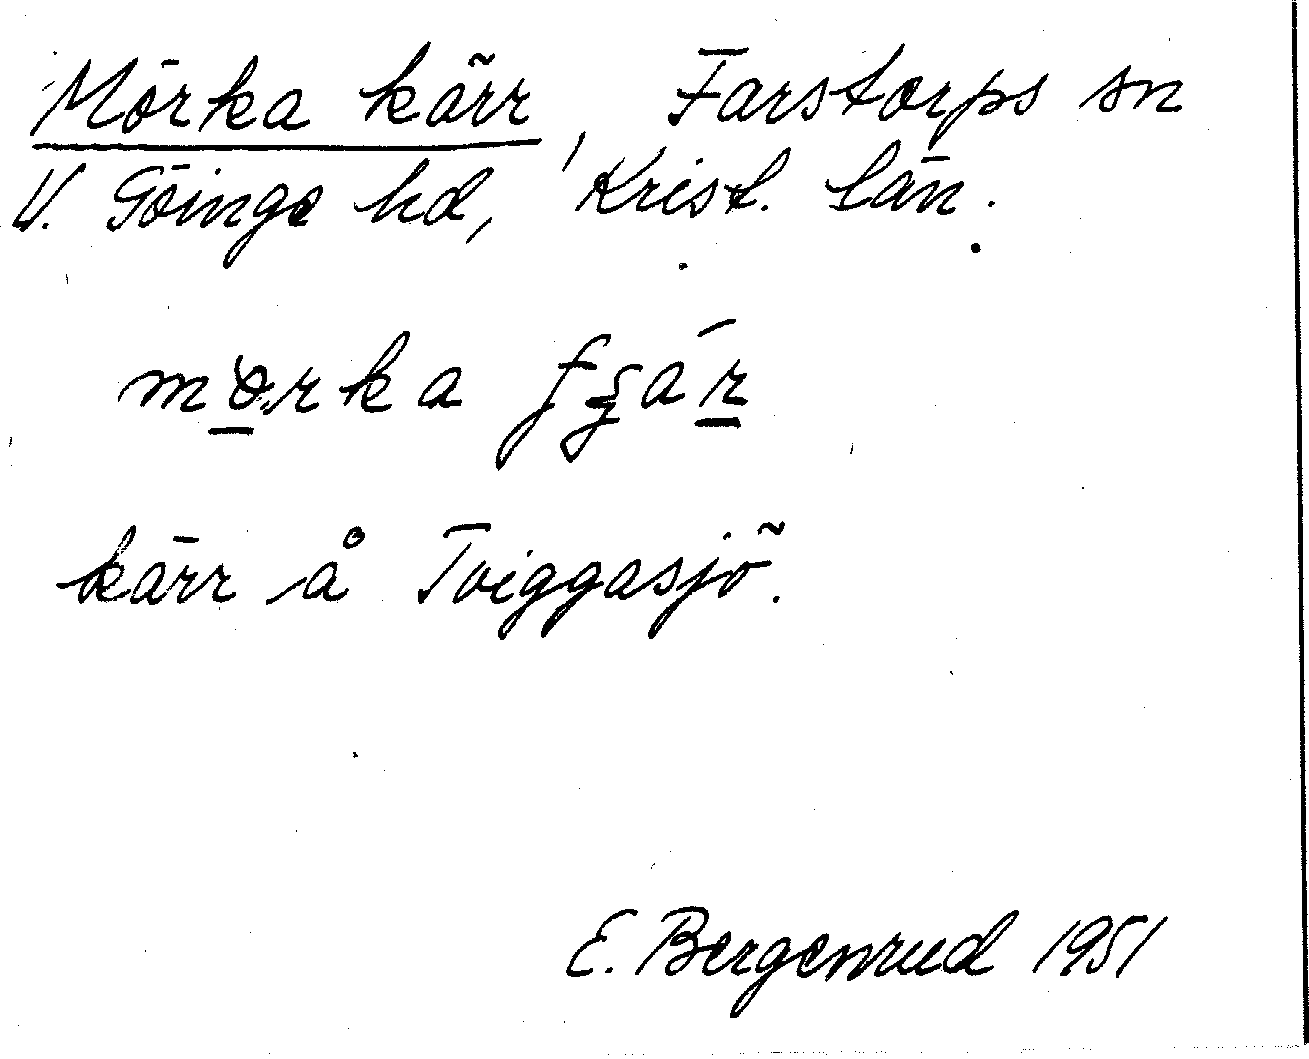 Mörka kärr, Farstorps sn
V. Göinge hd, Krist. län.
kärr å Tviggasjö.
E. Bergenrud 1951